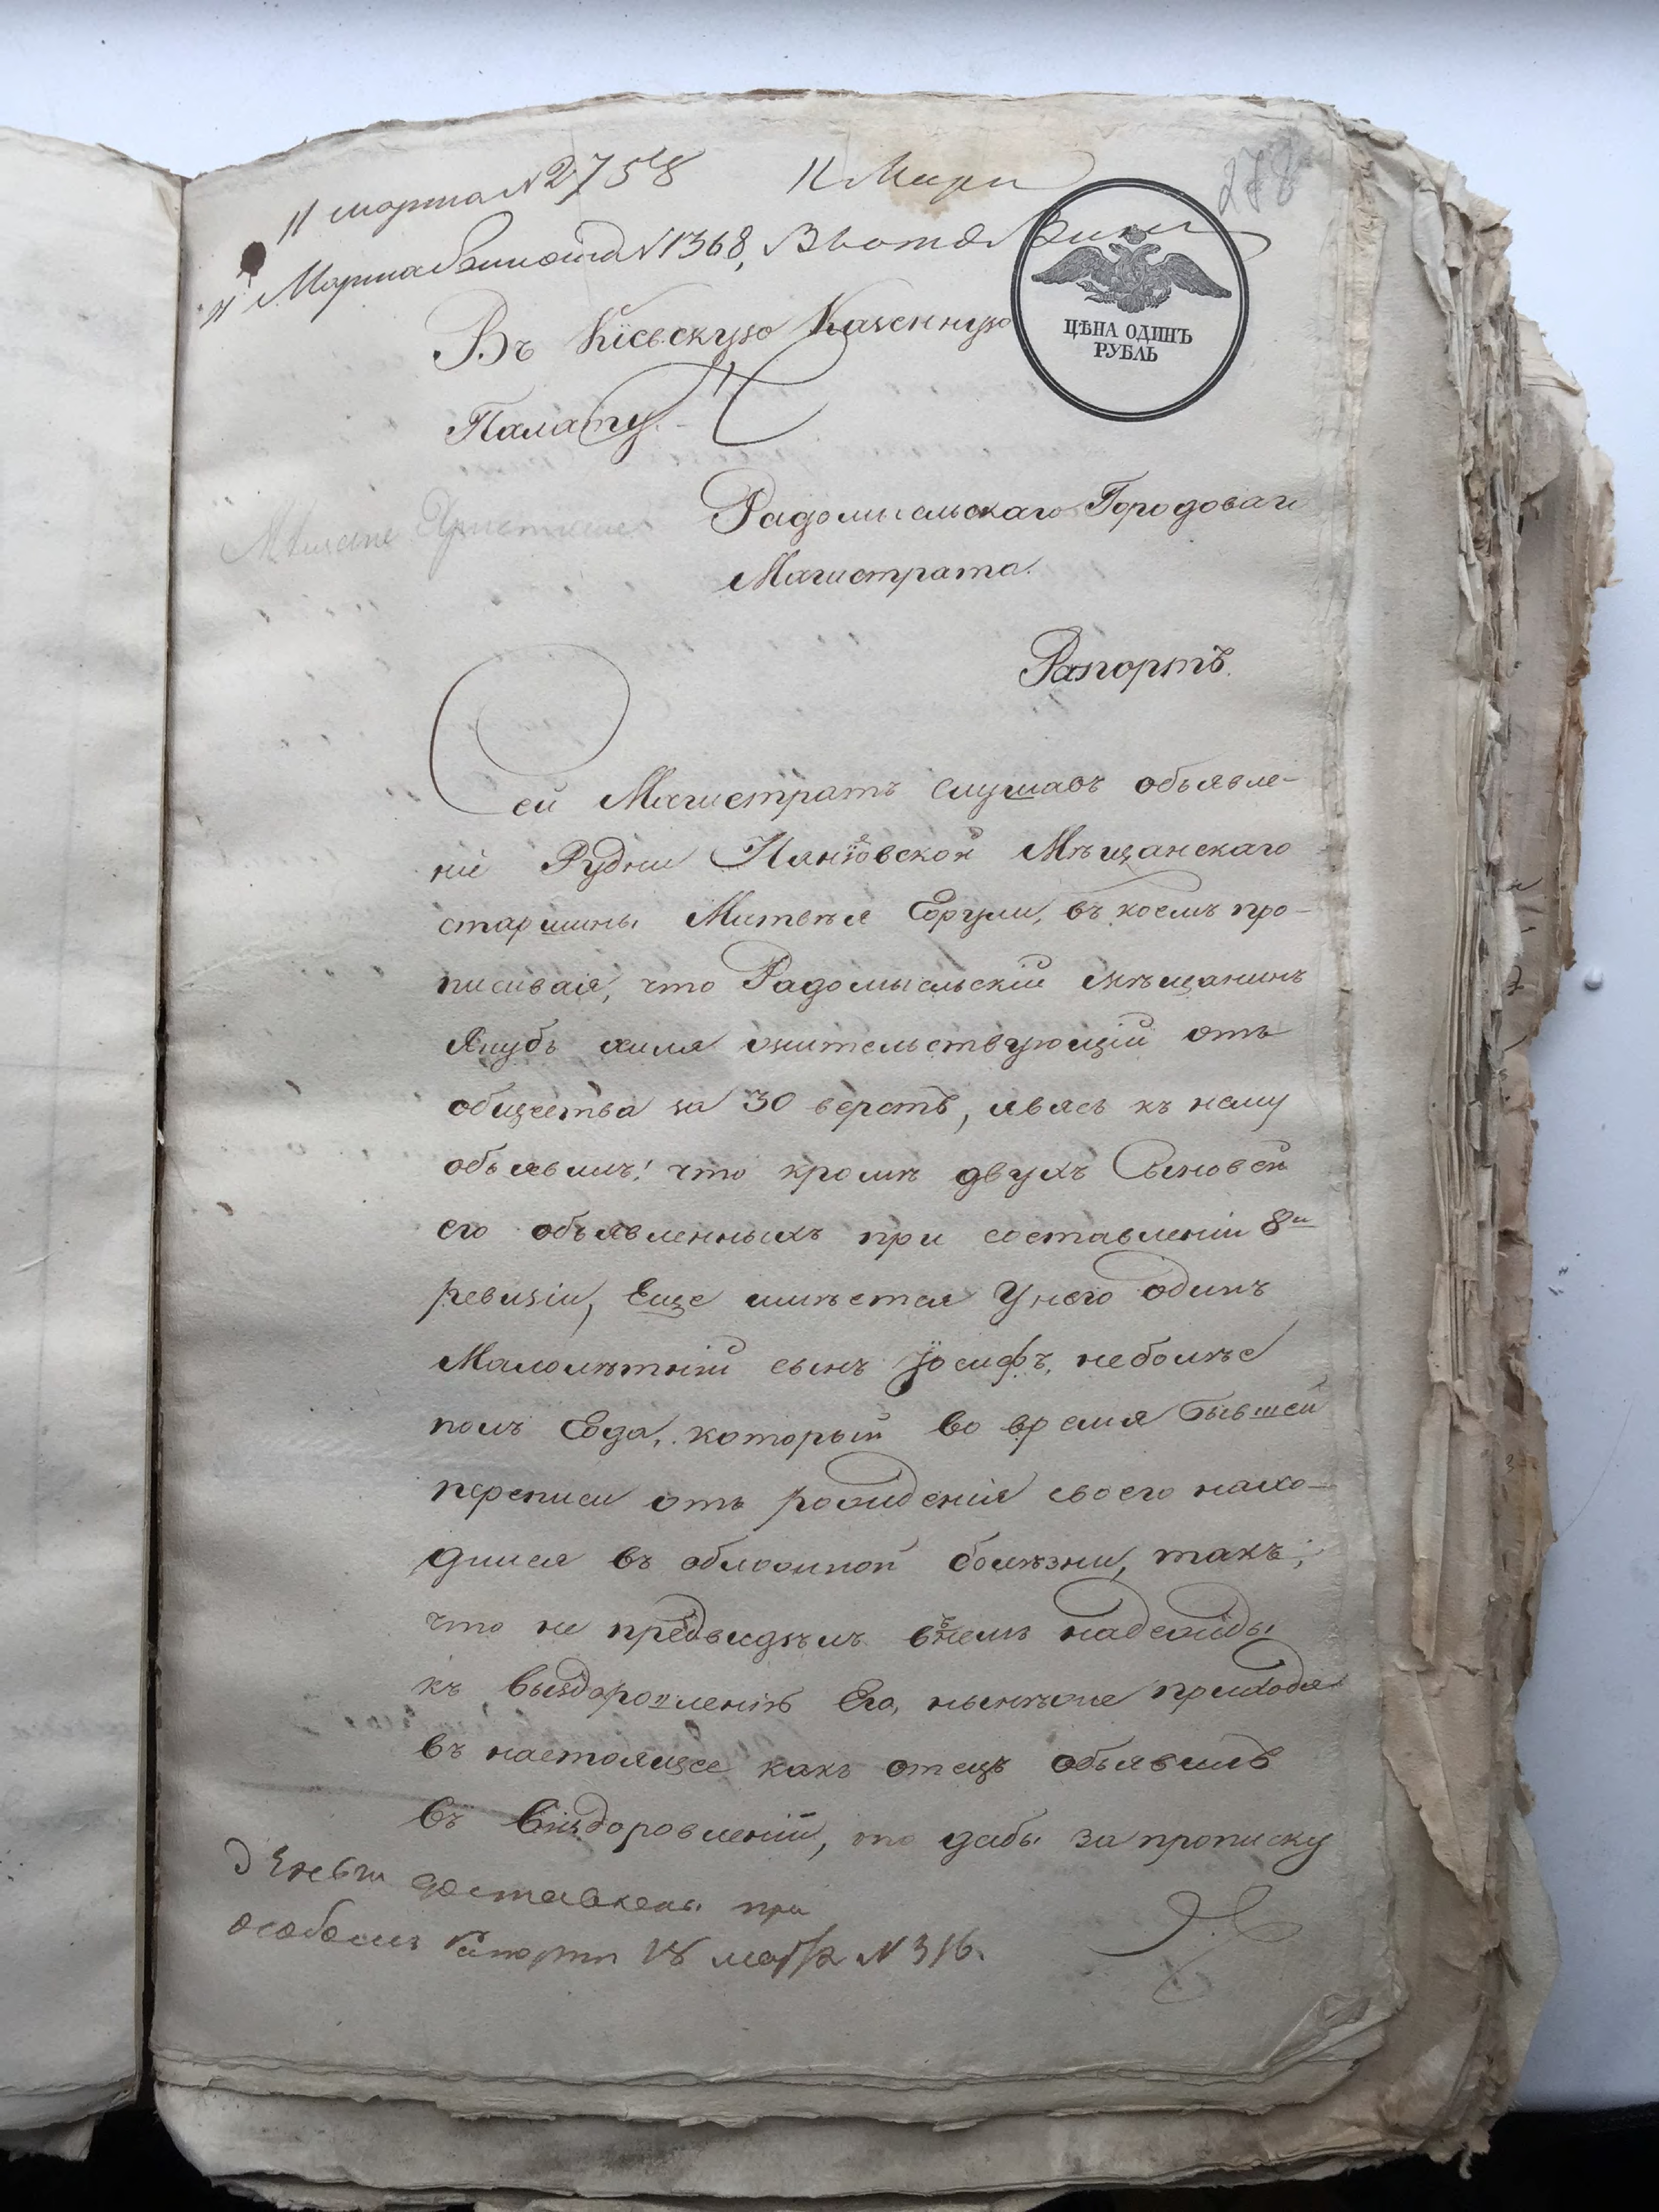 11 марта N 2758
11 Мар
278
11 Марта N 1368,
ЦѢНА ОДИНЪ
РУБЛЬ
Въ Кіевскую Казенную
Палату.
Радомысльскаго Городоваго
Магистрата.
Мѣщане Христиане
Рапортъ.
Сей Магистратъ слушавъ объявле-
ніе Рудни Мѣщанскаго
старшины Матвѣя въ коемъ про-
писывая, что Радомысльскій мѣщанинъ
Якубъ жительствующій отъ
общества за 30 верстъ, явясь къ нему
объявилъ! что кромѣ двухъ Сыновей
его объявленныхъ при составленіи 8й
ревизіи, Еще имѣется У него одинъ
Малолѣтній сынъ Іосифъ, неболѣе
полъ Года, который во время бывшей
переписи отъ рожденія своего нахо-
дился въ обложной болѣзни, такъ,
что не предвидѣлъ въ немъ надежды
къ выздоровленію Его, нынѣже приходя
въ настоящее какъ отецъ объявилъ
въ виздоровленій, то дабы за прописку
Деньги доставлены при
особомъ Рапортѣ 18 марта N 316.